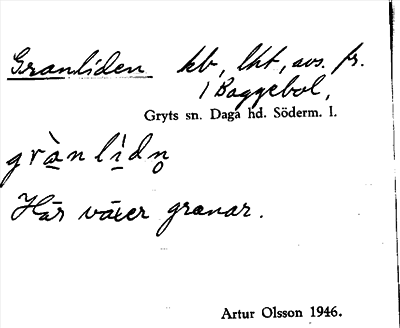 Granliden kb, lht, avs. fr.
1 Baggebol,
Gryts sn. Daga hd. Söderm. l.
grànlìdn̥
Här växer granar.
Artur Olsson 1946.